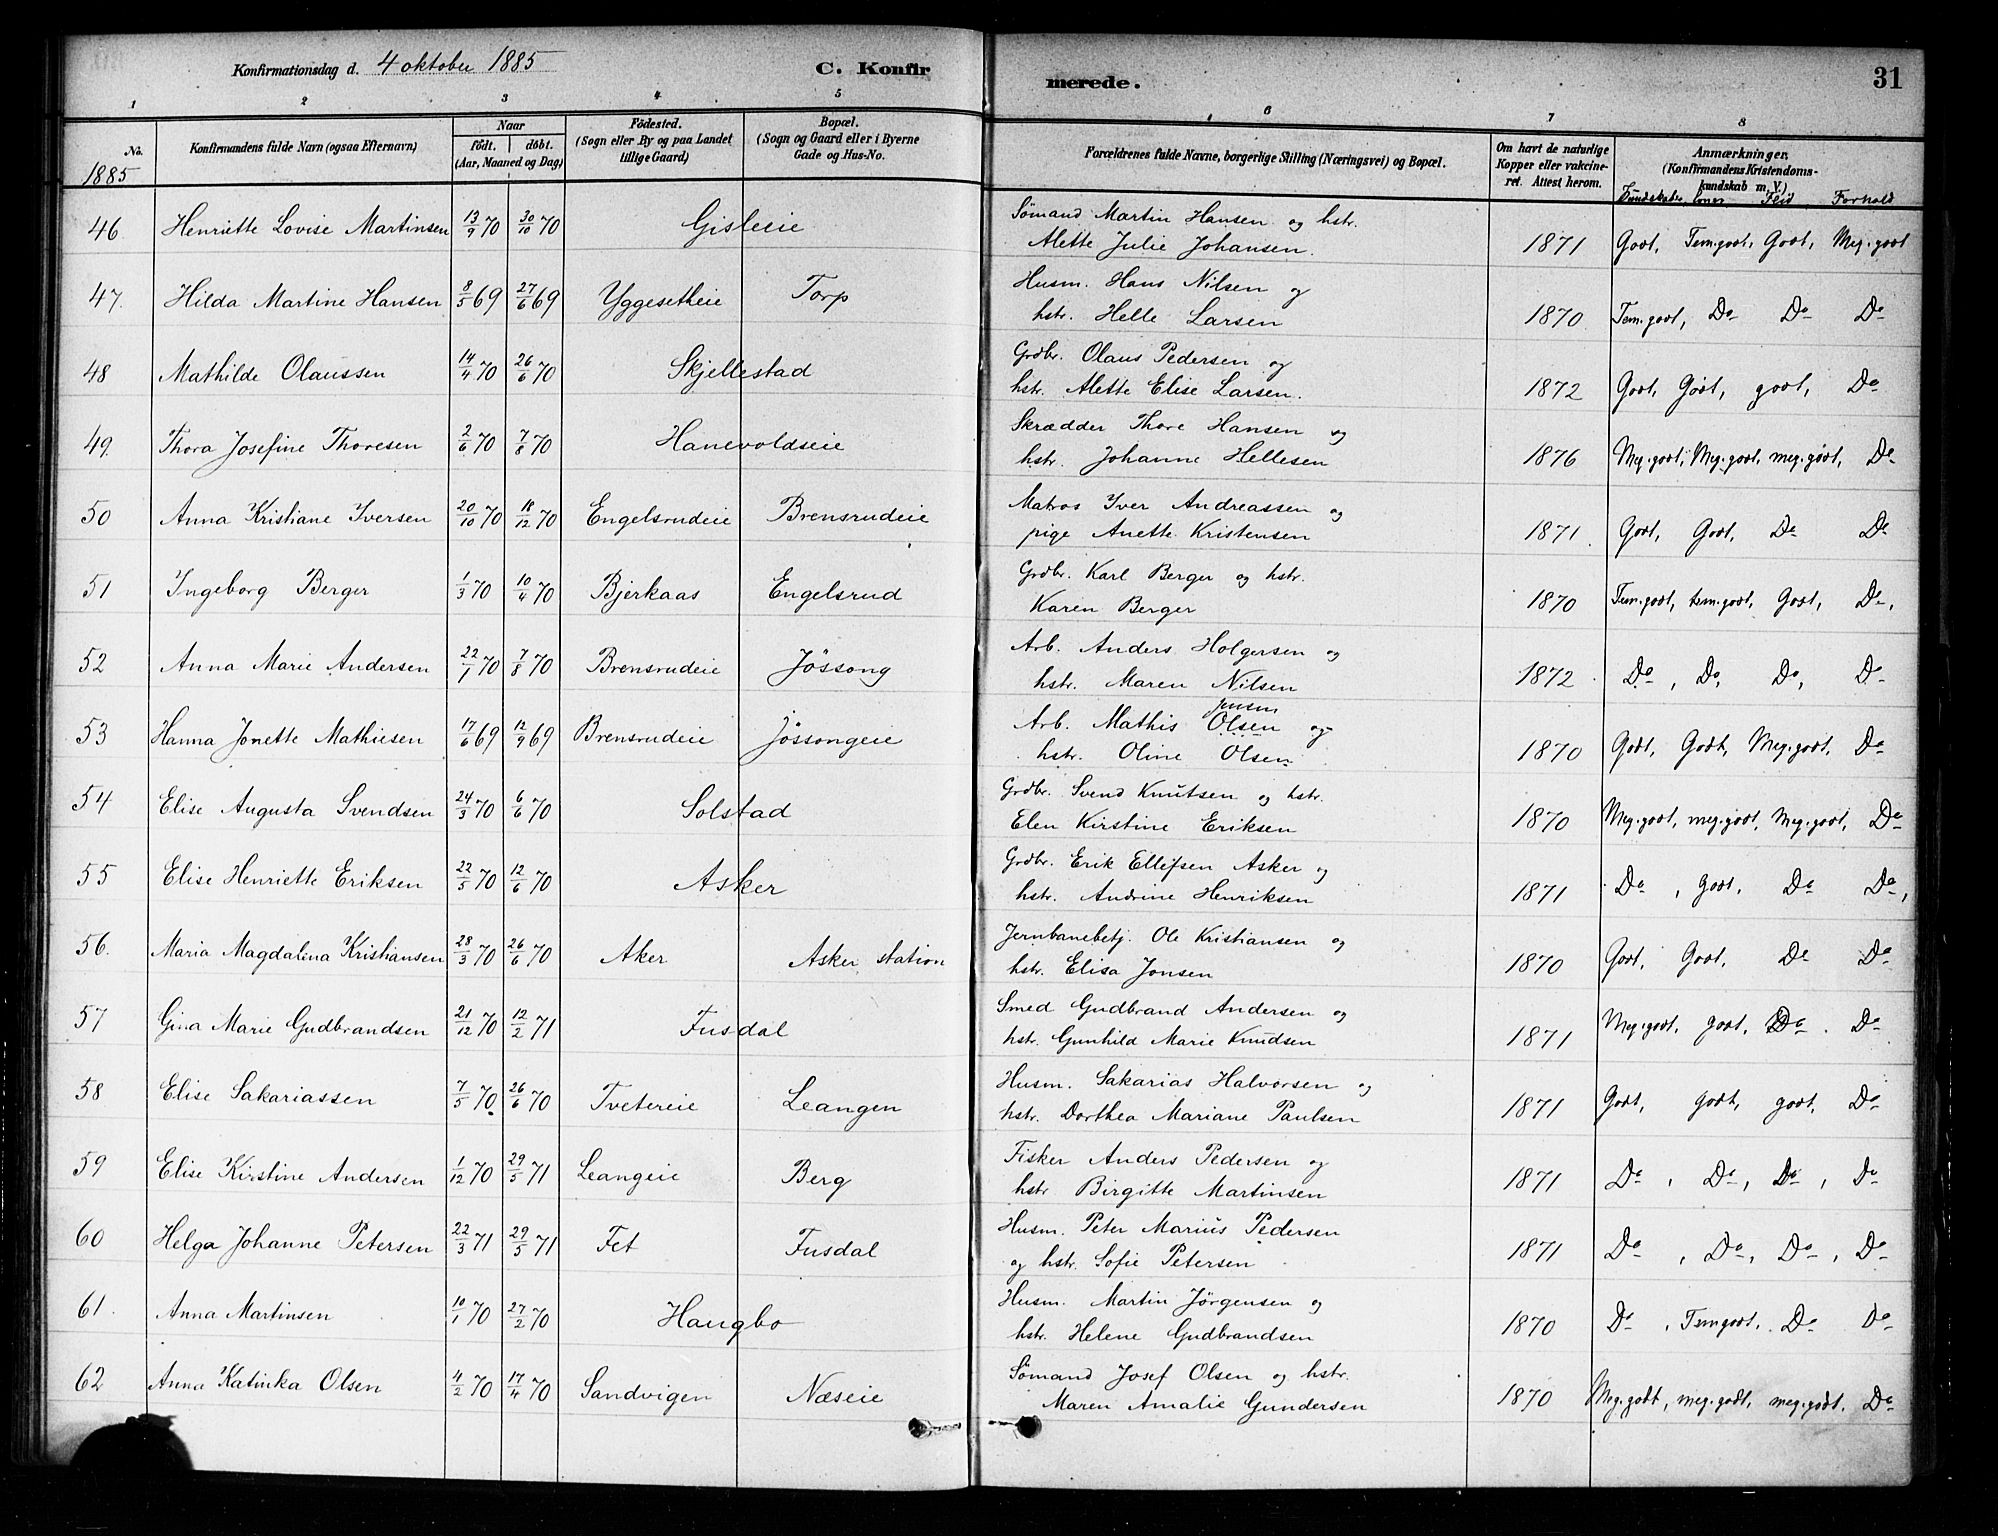 Konfirmationsdag d. 4 oktober 1885 C. Konfirmerede. 31
1 2 3 4 5 6 7 8
No. Konfirmandens fulde Navn (ogsaa Efternavn) Naar födt. döbt. (Aar, Maaned og Dag) Födested. (Sogn eller By og paa Landet tillige Gaard) Bopæl. (Sogn og Gaard eller i Byerne Gade og Hus-No. Forældrenes fulde Navne, borgerlige Stilling (Næringsvei) og Bopæl. Om havt de naturlige Kopper eller vakcineret. Attest herom. Anmærkninger. (Konfirmandens Kristendomskundskab m. V.)
1885 Kundskaber Flid Forhold
46. Henriette Lovise Martinsen 13/9 70 30/10 70 Gisleeie Sømand Martin Hansen og hstr.
Alette Julie Johansen. 1871 Godt, Tem.godt, Godt, Meg.godt
47. Hilda Martine Hansen 8/5 69 27/6 69 Yggesetheie Torp Husm. Hans Nilsen og
hstr. Helle Larsen 1870 Tem.godt, Do Do Do
48 Mathilde Olaussen 14/4 70 26/6 70 Skjellestad Grdbr. Olaus Pedersen og
hstr. Alette Elise Larsen. 1872 Godt, Godt, godt, Do
49. Thora Josefine Thoresen 2/6 70 7/8 70 Hanevoldseie Skrædder Thore Hansen og
hstr. Johanne Hellesen 1876 Meg.godt, Meg.godt, meg.godt, Do
50 Anna Kristiane Iversen 20/10 70 18/12 70 Engelsrudeie Brensrudeie Matros Iver Andreassen og
pige Anette Kristensen 1871 Godt, Godt, Do Do
51 Ingeborg Berger 1/3 70 10/4 70 Bjerkaas Engelsrud Grdbr. Karl Berger og hstr.
Karen Berger 1870 Tem.godt, tem.godt, Godt, Do,
52 Anna Marie Andersen 22/1 70 7/8 70 Brensrudeie Jössong Arb. Anders Holgersen og
hstr. Maren Nilsen 1872 Do, Do, Do, Do
53 Hanna Jonette Mathiesen 17/6 69 12/9 69 Brensrudeie Jössongeie Arb. Mathis Olsen og
hstr. Oline Olsen 1870 Godt, Godt, Meg.godt, Do
54 Elise Augusta Svendsen 24/3 70 6/6 70 Solstad Grdbr. Svend Knutsen og hstr.
Elen Kirstine Eriksen 1870 Meg.godt, meg.godt, Meg.godt, Do
55 Elise Henriette Eriksen 22/5 70 12/6 70 Asker Grdbr. Erik Ellefsen Asker og
hstr. Andrine Henriksen 1871 Do, godt, Do Do,
56. Maria Magdalina Kristiansen 28/3 70 26/6 70 Aker Asker station Jernbanebetj. Ole Kristiansen og
hstr. Elisa Jonsen 1870 Godt, Godt, Do Do
57 Gina Marie Gudbrandsen 21/12 70 12/2 71 Fusdal Smed Gudbrand Andersen og
hstr. Gunhild Marie Knudsen 1871 Meg.godt, godt, Do. Do
58 Elise Sakariassen 7/5 70 26/6 70 Tvetereie Leangen Husm. Sakarias Halvorsen og
hstr. Dorthea Mariane Paulsen 1871 Godt, godt, godt, Do
59 Elise Kirstine Andersen 1/12 70 29/5 71 Leangeie Berg Fisker Anders Pedersen og
hstr Birgitte Martinsen 1871 Do, Do, Do, Do
60 Helga Johanne Petersen 22/3 71 29/5 71 Fet Fusdal Husm. Peter Marius Pedersen
og hstr. Sofie Petersen 1871 Do, Do, Do, Do
61. Anna Martinsen 10/1 70 27/2 70 Haugbo Husm. Martin Jörgensen og
hstr. Helene Gudbrandsen 1870 Do, Tem.godt, Do Do
62 Anna Katinka Olsen 4/2 70 17/4 70 Sandvigen Næseie Sømand Josef Olsen og hstr.
Maren Amalie Gundersen 1870 Meg.godt, meg.godt, meg.godt. Do